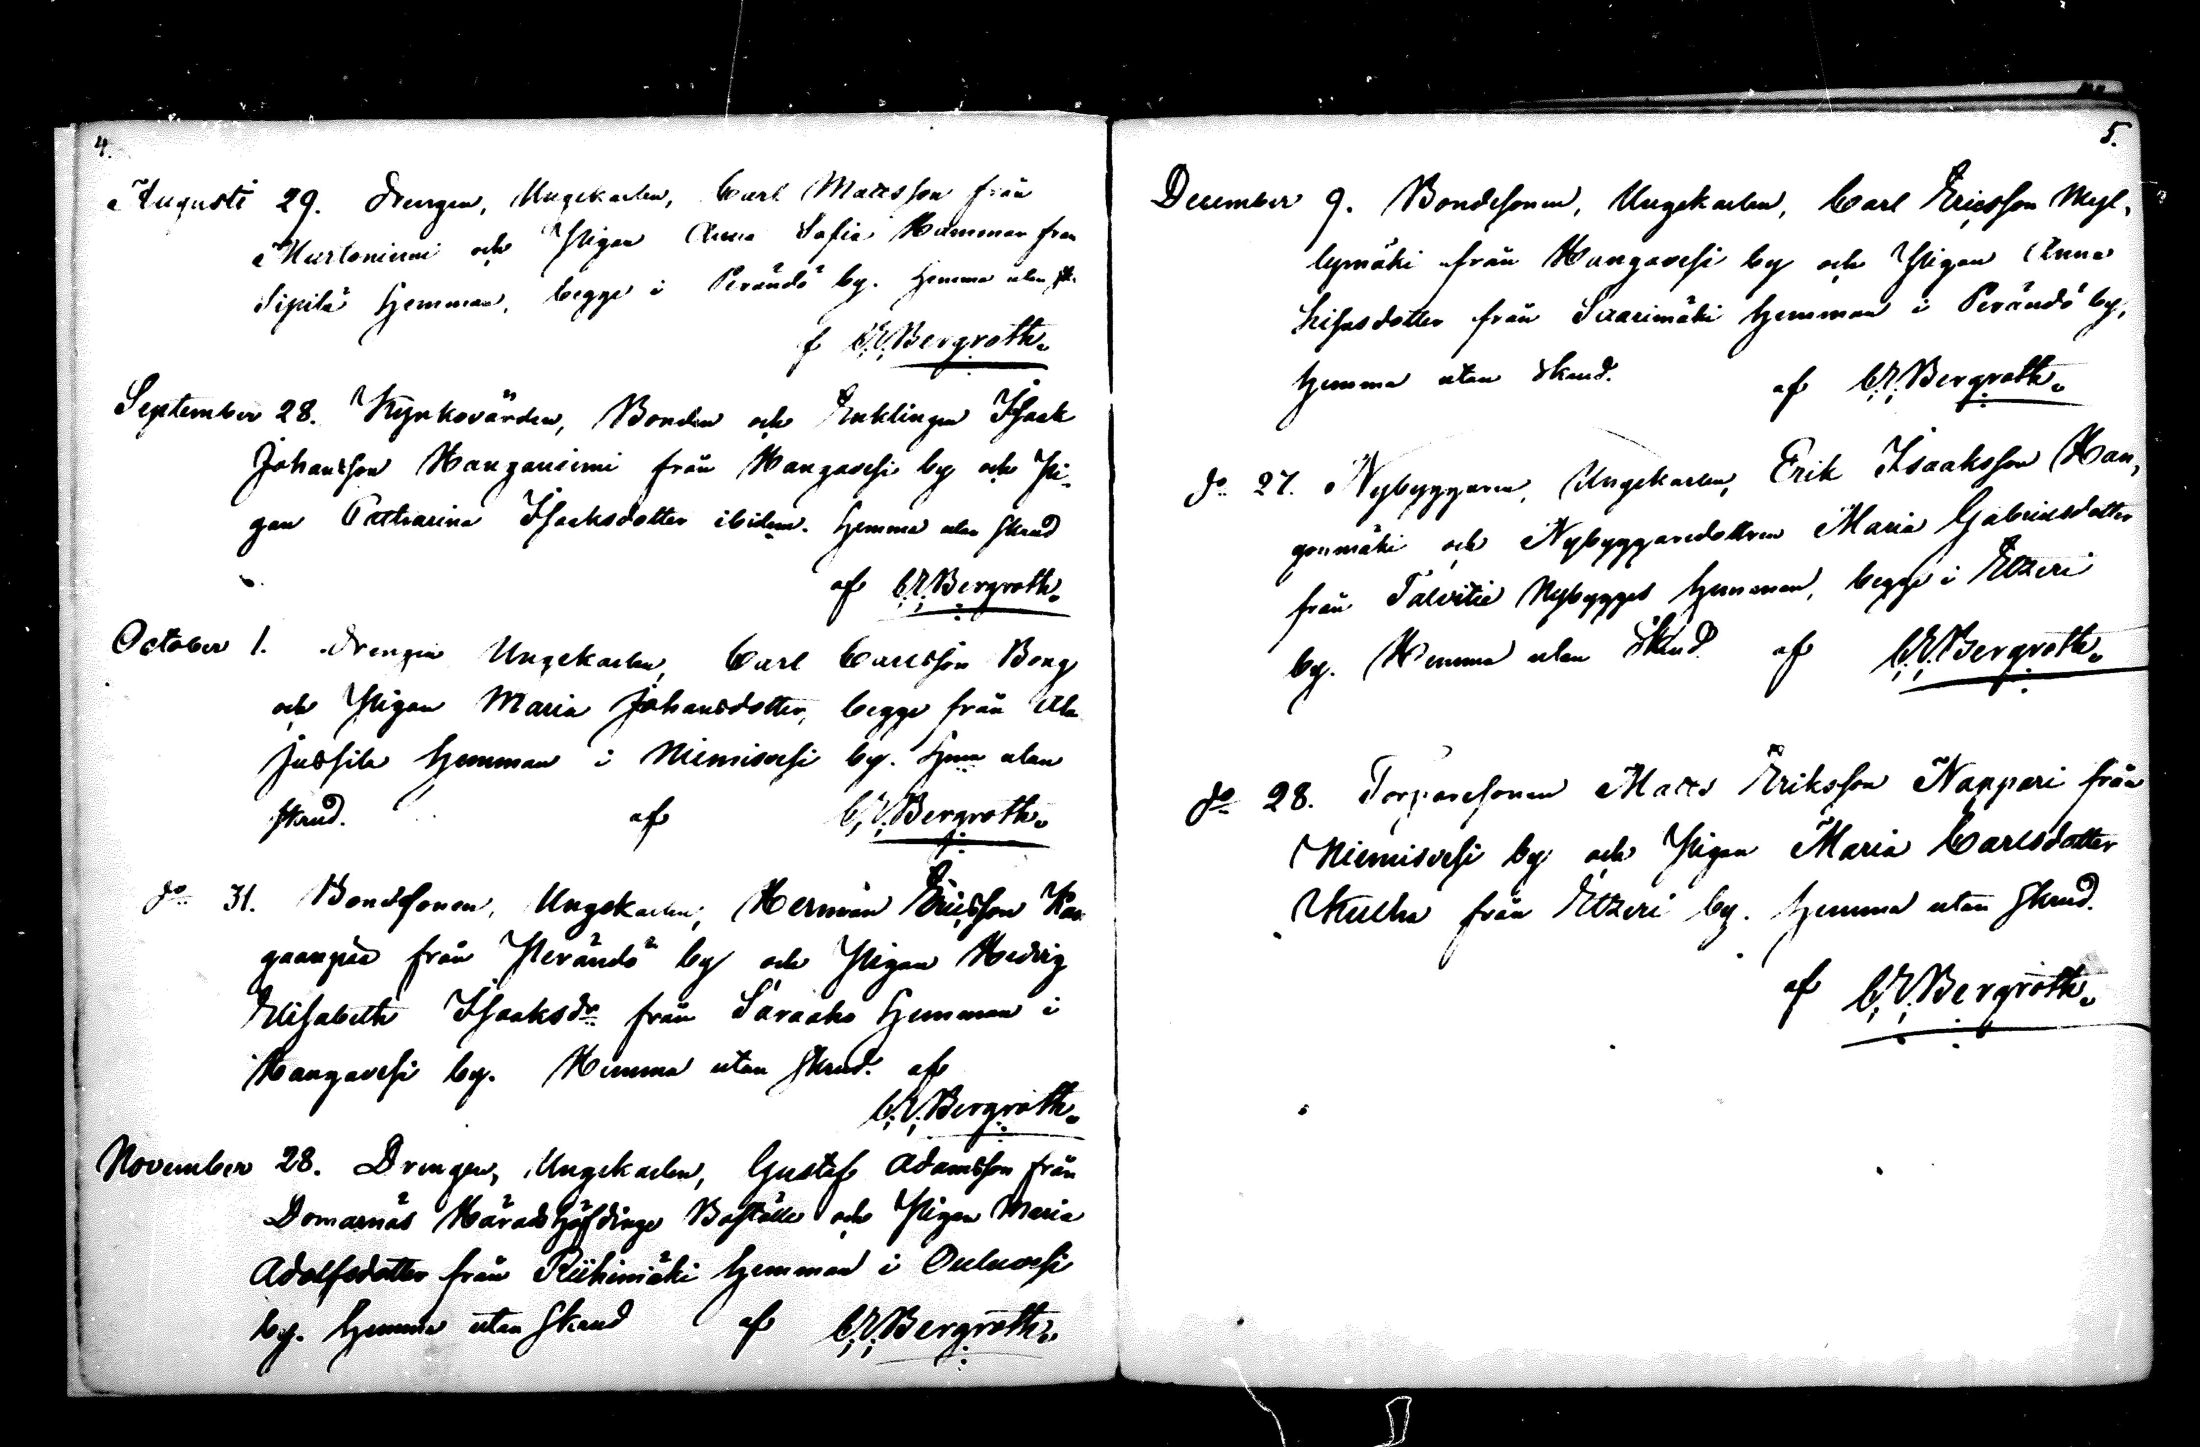 4.
Augusti 29. Drengen, Ungekarlen, Carl Mattsson från
Murtoniemi och Pigan Anna Sofia Hammar från
Sipilä Hemman, begge i Perändö by. Hemma utan
f C.E.Bergroth.
September 28. Kyrkovärden, Bonden och Enklingen Isaak
Johansson Hanganiemi från Hangavesi by och Pi-
gan Catharina Isaksdotter ibidem. Hemma utan skrud
af C.E.Bergroth.
October 1. Drengen Ungekarlen, Carl Carlsson Bong
och Pigan Maria Johansdotter, begge från Ala
Jussila Hemman i Niemisvesi by. Hem utan
skrud. af C.E.Bergroth.
do 31. Bondsonen, Ungekarlen, Herman Ericsson Kan
gaanpää från Perändö by och Pigan Hedvig
Elisabeth Isaaksdr från Saraaho Hemman i
Hangavesi by. Hemma utan skrud. af
C.E.Bergroth.
November 28. Drengen, Ungekarlen, Gustaf Adamsson från
Domarnäs Häradshöfdinge Boställe och Pigan Maria
Adolfsdotter från Riihimäki Hemman i Ouluvesi
by. Hemma utan skrud af C.E.Bergroth.
5.
December 9. Bondesonen, Ungekarlen, Carl Ericsson Myl-
lymäki från Hangavesi by och Pigan Anna
från Saarimäki Hemman i Perändö by,
Hemma utan skrud. af C.E.Bergroth.
do 27. Nybyggaren, Ungekarlen, Erik Isaaksson Han-
gonmäki och Nybyggaredottren Maria Gabrielsdotter
från Talvitie Nybygges Hemman, begge i Etzeri
by. Hemma utan skrud af C.E.Bergroth.
do 28. Torparesonen Matts Eriksson Nappari från
Niemisvesi by och Pigan Maria Carlsdotter
Kulha från Etzeri by. Hemma utan skrud.
af C.E.Bergroth.